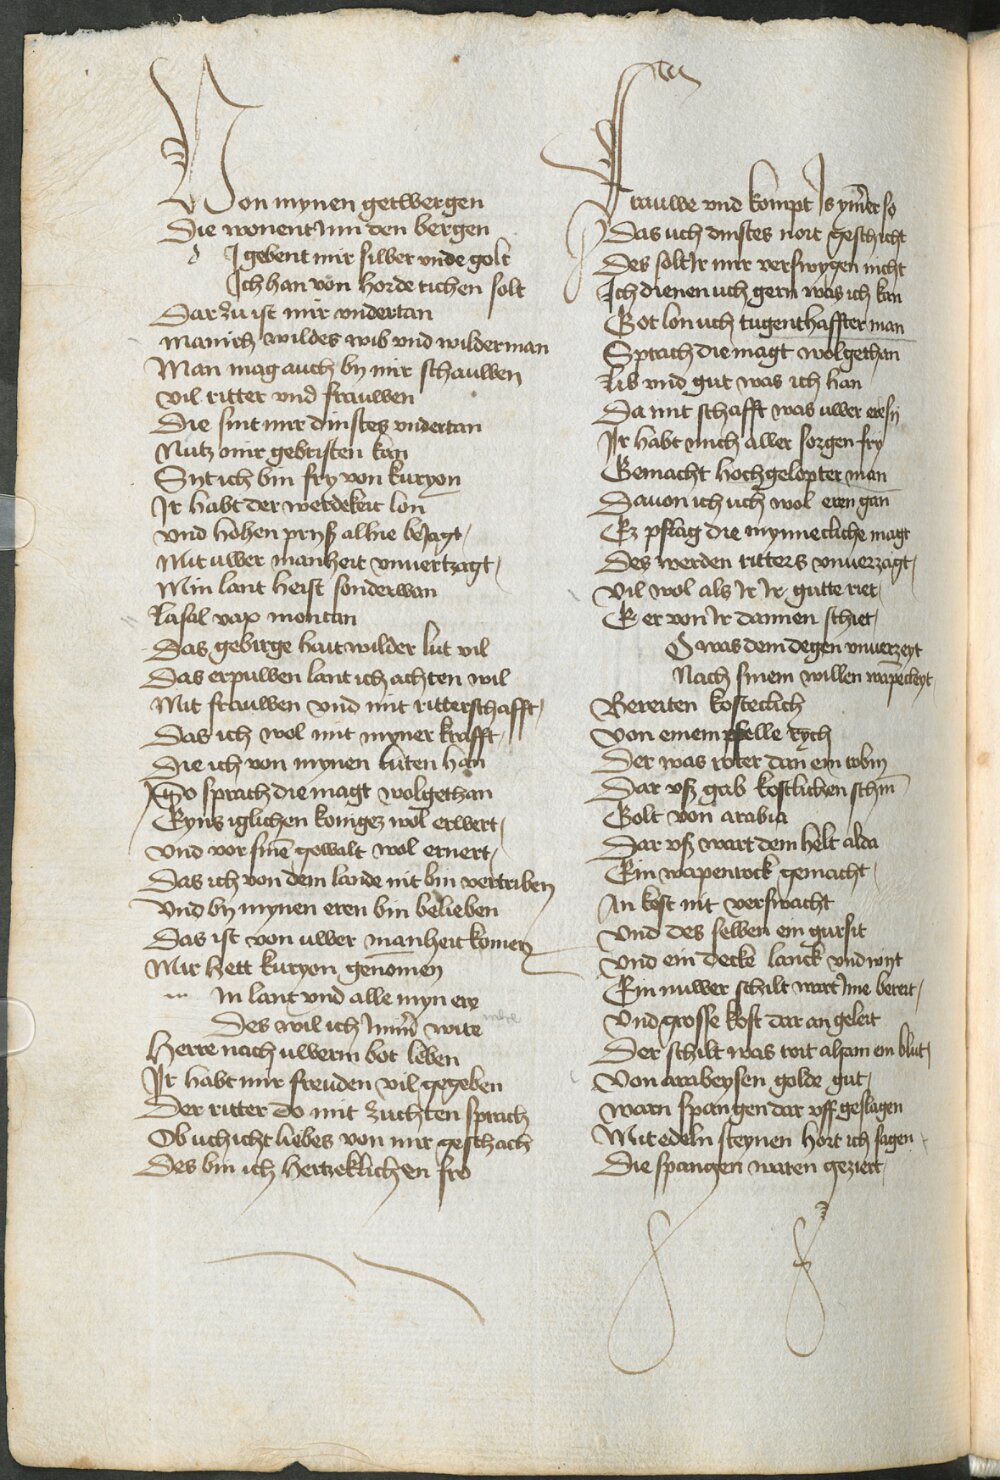 Von mynen getwergen
Die wonent Inn den bergen
d I gebent mir silber vnde golt
Ich han von horde richen solt
Dar zu ist mir vndertan
Manich wildes wib vnd wilder man
Man mag auch by mir schauwen
Vil ritter vnd frauwen
Die sint mir dinstes vndertan
Nutz mir gebristen kan
Syt ich bin fry von kuryon
Ir habt der werdekeit lon
Vnd hohen pryß alhie beJagt
Mit uwer manheit vnuertzagt
Min lant heist sonderwan
Lasal vax montan
Das gebirge hait wilder lut vil
Das erpuwen lant ich achten wil
Mit frauwen vnd mit ritterschafft
Das ich wol mit myner krafft
Die ich von mynen luten han
Do sprach die magt wolgetzan
Eyns iglichen konigez wol erwert
Vnd vor sine gewalt wol ernert
Das ich von dem lande nit bin vertriben
Vnd by mynen eren bin beliben
Das ist von uwer manheit komen
Mir hett kuryon genomen
m In lant vnd alle myn ere
Des wil ich Imm̄ mere
Herre nach uwerm bot leben
Ir habt mir freuden vil gegeben
Der ritter do mit zuchten sprach
Ob uch icht liebes von mir geschach
Des bin ich hertzeklichen fro
Frauwe vnd kompt Is ym̄er so
Das uch dinstes nort geschicht
Des solt Ir mir verswygen nicht
Ich dienen uch gern was ich kan
Got lon uch tugenthaffter man
Sprach die magt wolgethan
Lib vnd gut was ich han
Da mit schafft was uwer ere sy
Ir habt mich aller sorgen fry
Gemacht hochgelopter man
Dauon ich uch wol eren gan
Ez pflag die mynnecliche magt
Des werden ritters vnuerzagt
Vil wol als Ir Ir gutte riet
E er von Ir dannen schiet
D O was dem degen vnuerzeyt
Nach sinem willen wapecleyt
Bereiten kosteclich
Von einem pfelle rych
Der was roter dan ein robin
Dar vß gab kostlichen schin
Golt von arabia
Dar vß wart dem helt alda
Ein wapenrock gemacht
An kost nit verswacht
Vnd des selben ein gursit
Vnd ein decke lanck vnd wyt
Ein nuwer schilt wart Ime bereit
Vnd grosse kost dar an geleit
Der schilt was roit alsam ein blut
Von arabeysen golde gut
Warn spangen dar vff geslagen
Mit edeln steynen hort ich sagen
Die spangen waren geziert